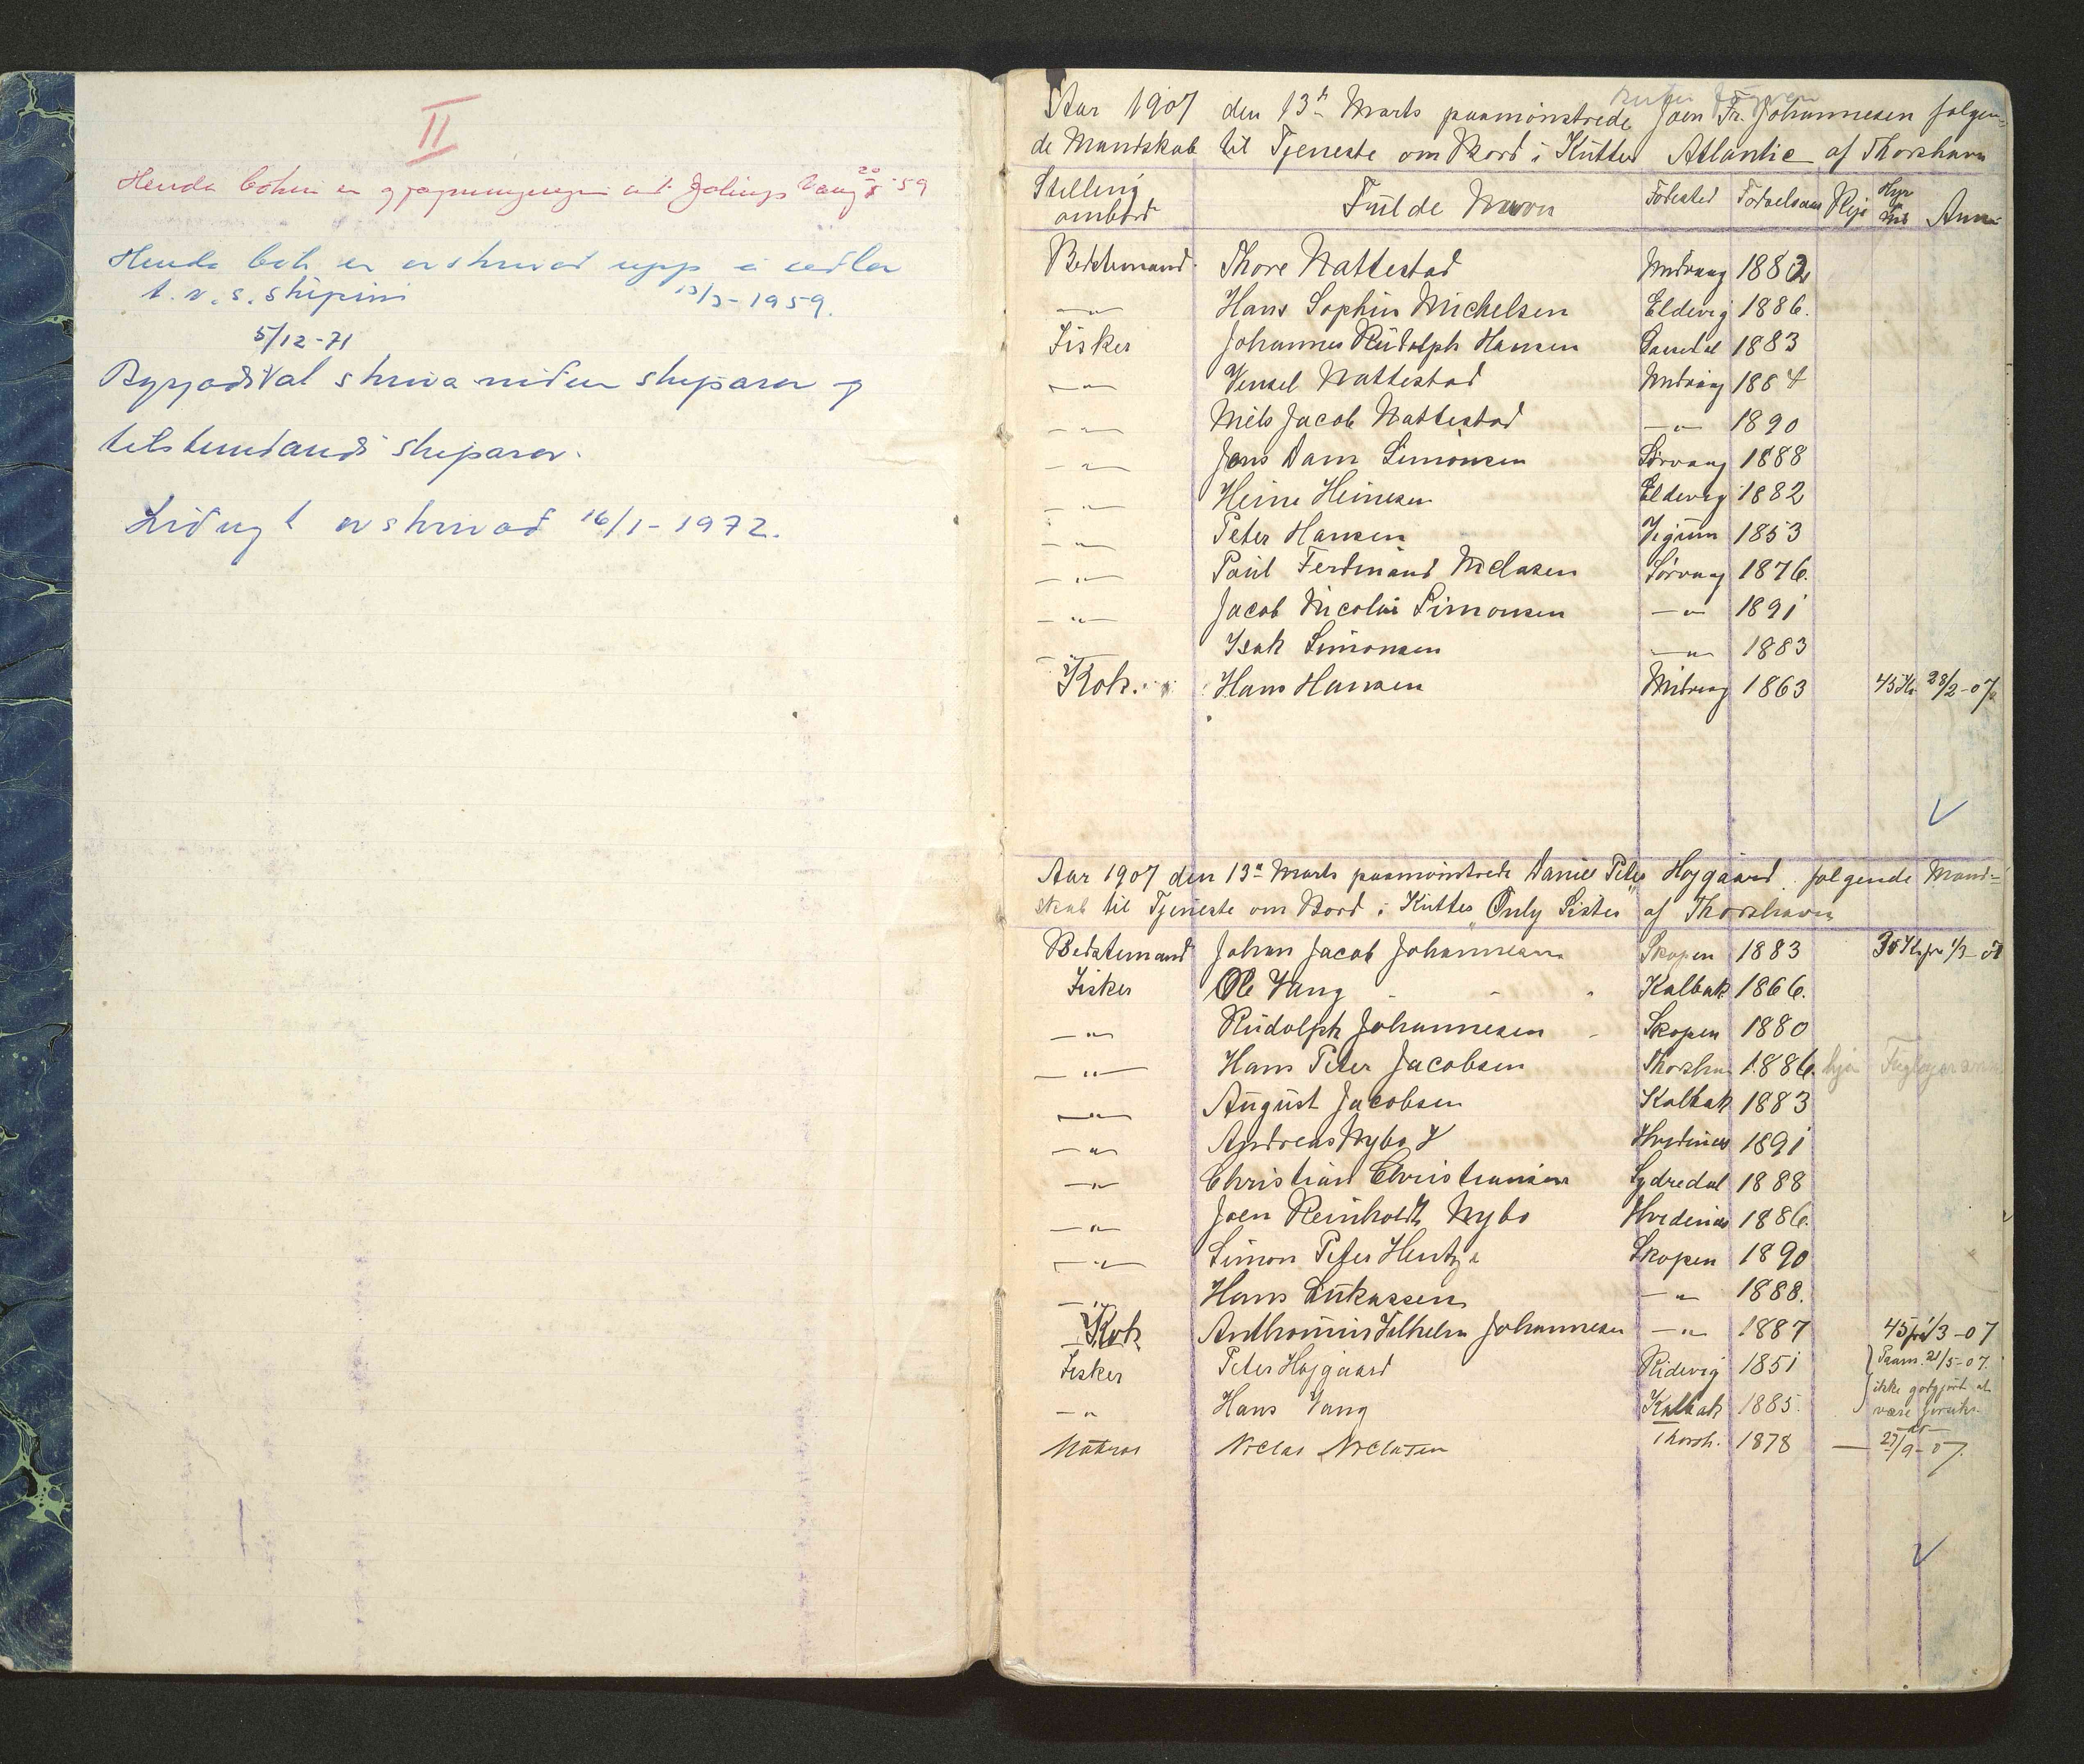 II
Henda bókin er gjøgnumgingin av Jólings Vang 20/5-59
Henda bók er avskrivað upp á sedlar
t.v.s. skipini 13/3-1959.
5/12-71
Byrjaði at skriva niður skiparar og
tilstundandi skiparar.
Liðugt avskrivað 16/1-1972.
Aar 1907 den 13d Marts paamönstrede Joen Fr. Johannesen følgen=
de Mandskab til Tjeneste om Bord i Kutter Atlantic af Thorshavn
Stilling ombord Fulde Navn Fødested Fødselsaar Hyre Anm
Bedstemand Thore Nattestad Midvaag 1882
—"— Hans Sophus Michelsen Eldevig 1886.
Fisker Johannes Rudolph Hansen Sandal 1883
—"— Vensel Nattestad Midvaag 1884
—"— Niels Jacob Nattestad —"— 1890
—"— Jens Dam Simonsen Sørvaag 1888
—"— Heine Heinesen Eldevig 1882
—"— Peter Hansen Vigum 1853
—"— Paul Ferdinand Niclasen Sørvaag 1876.
—"— Jacob Nicolai Simonsen —"— 1891
—"— Isak Simonsen —"— 1883
Kok. Hans Hansen Midvaag 1863 45 Kr. 28/2-07
Aar 1907 den 13d Marts paamönstrede Daniel Peter Højgaard følgende Mand=
skab til Tjeneste om Bord i Kutter "Only Sister" af Thorshavn
Bedstemand Johan Jacob Johannesen Skopen 1883 30 Kr fra 1/3-07
Fisker Ole Vang Kalbak 1866.
—"— Rudolph Johannesen Skopen 1880
—"— Hans Peter Jacobsen Thorshn 1886. hjá
—"— August Jacobsen Kalbak 1883
—"— Andreas Nybo Hvidenæs 1891
—"— Christian Christiansen Sydredal 1888
—"— Joen Reinholdt Nybo Hvidenæs 1886.
—"— Simon Peter Hentze Skopen 1890
—"— Hans Lukassen —"— 1888.
Kok Anthonius Vilhelm Johannesen —"— 1887 45 fra 1/3-07
Fisker Peter Højgaard Ridevig 1851 Paam. 21/5-07.
—"— Hans Vang Kalbak 1885. ikke godgjort at være forsikr
Matros Niclas Niclasen Thorsh. 1878 — 27/9-07.